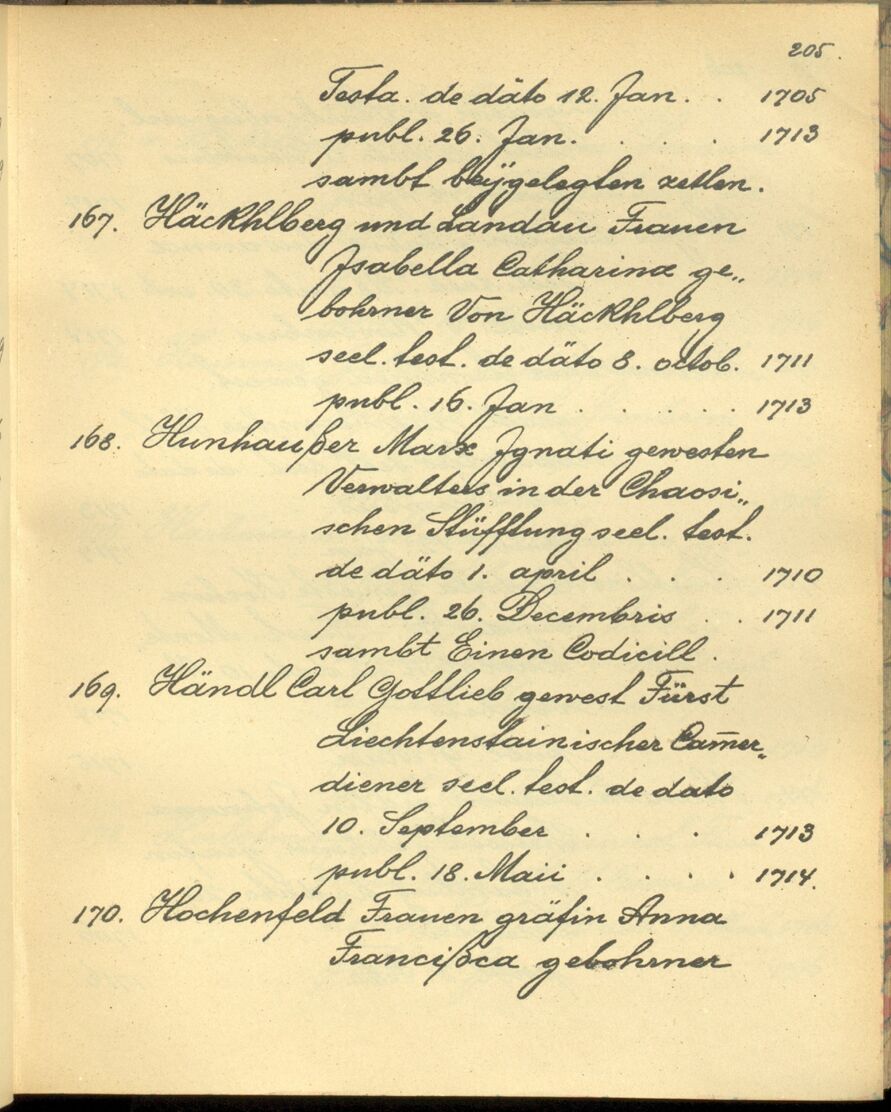 205.
Testa. de däto 12. Jan. . . 1705
publ. 26. Jan. . . . . 1713
sambt beÿgelegten zetlen.
167. Häckhlberg und Landau Frauen
Jsabella Catharina ge„
bohrner Von Häckhlberg
seel. test. de däto 8. octob. 1711
publ. 16. Jan . . . . . . 1713
168. Hunhaußer Marx Jgnati gewesten
Verwalters in der Chaosi„
schen Stüfftung seel. test.
de däto 1. april . . . 1710
publ. 26. Decembris . . 1711
sambt Einen Codicill.
169. Händl Carl Gottlieb gewest Fürst
Liechtenstainischer Cam̅er„
diener seel. test. de dato
10. September . . . 1713
publ. 18. Maii . . . . 1714.
170. Hochenfeld Frauen gräfin Anna
Francißca gebohrner